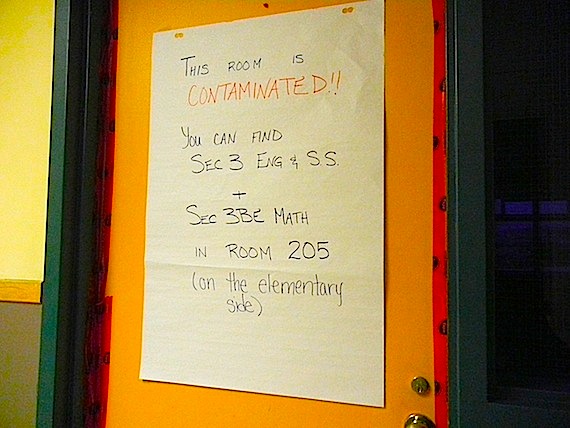 THIS ROOM IS
CONTAMINATED!!
YOU CAN FIND
SEC 3 ENG & S.S.
+
SEC 3BE MATH
IN ROOM 205
(on the elementary
side)